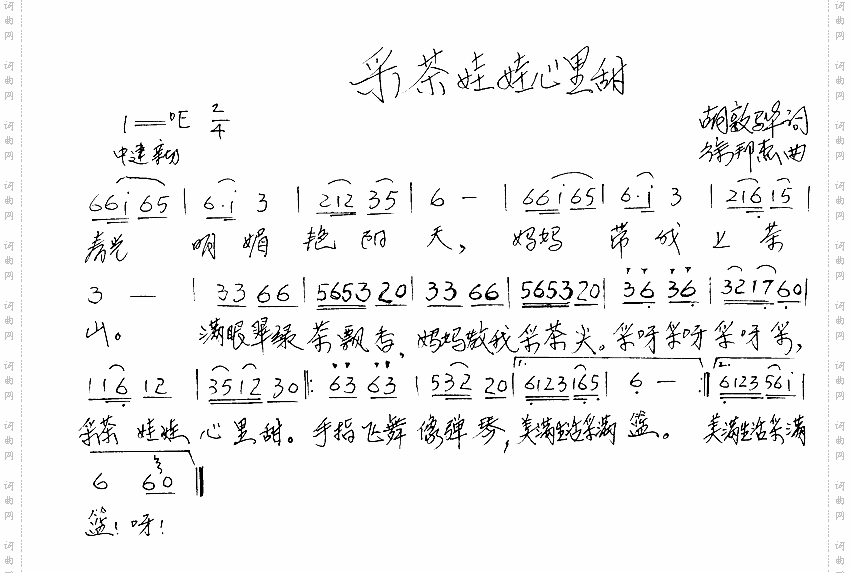 采茶娃娃心里甜
1=♭E 2/4
胡敦骅词
中速 亲切
徐邦杰曲
66i 65 | 6·i 3 | 212 35 | 6 - | 66i65 | 6·i 3 | 216 15 |
春光 明媚 艳阳 天, 妈妈 带我 上茶
3 - | 33 66 | 5653 20 | 33 66 | 5653 20 | 36 36 | 3217 60 |
山。 满眼翠绿 茶飘香, 妈妈教我 采茶尖。采呀采呀 采呀采,
116 12 | 3512 30 |: 63 63 | 532 20 | 1. 6123165 | 6 - :| 2. 6123561 |
采茶 娃娃 心里甜。手指飞舞 像弹琴, 美满生活采满 篮。 美满生活采满
6 60 ‖
篮! 呀!
词曲网